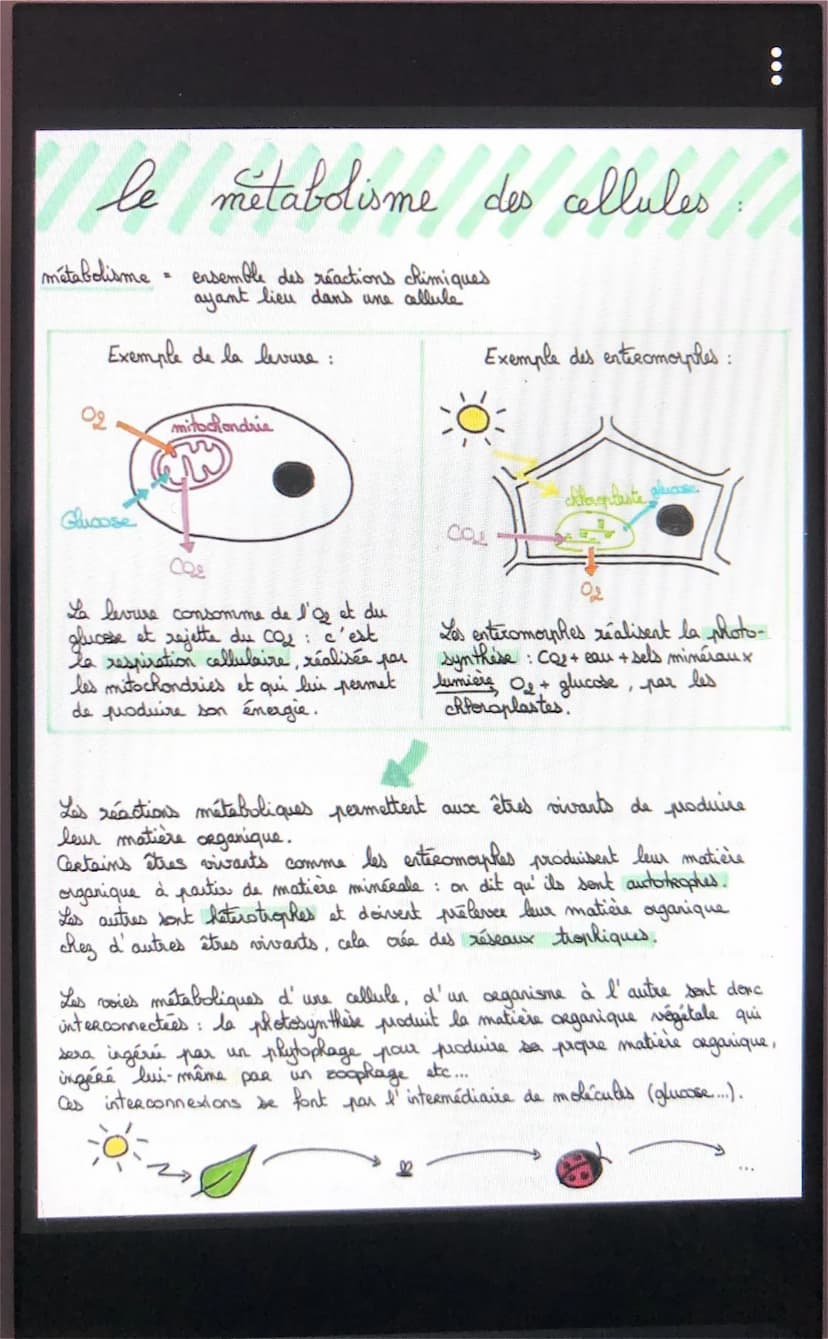 le métabolisme des cellules :
métabolisme = ensemble des réactions chimiques
ayant lieu dans une cellule
Exemple de la levure :
O2
mitochondrie
Glucose
CO2
La levure consomme de l'O2 et du
glucose et rejette du CO2 : c'est
la respiration cellulaire, réalisée par
les mitochondries et qui lui permet
de produire son énergie.
Exemple des entéromorphes :
chloroplaste
glucose
CO2
O2
Les entéromorphes réalisent la photo-
synthèse : CO2 + eau + sels minéraux
lumière, O2 + glucose, par les
chloroplastes.
Les réactions métaboliques permettent aux êtres vivants de produire
leur matière organique.
Certains êtres vivants comme les entéromorphes produisent leur matière
organique à partir de matière minérale : on dit qu'ils sont autotrophes.
Les autres sont hétérotrophes et doivent prélever leur matière organique
chez d'autres êtres vivants, cela crée des réseaux trophiques.
Les voies métaboliques d'une cellule, d'un organisme à l'autre sont donc
interconnectées : la photosynthèse produit la matière organique végétale qui
sera ingéré par un phytophage pour produire sa propre matière organique,
ingéré lui-même par un zoophage etc...
Ces interconnexions se font par l'intermédiaire de molécules (glucose...).
...